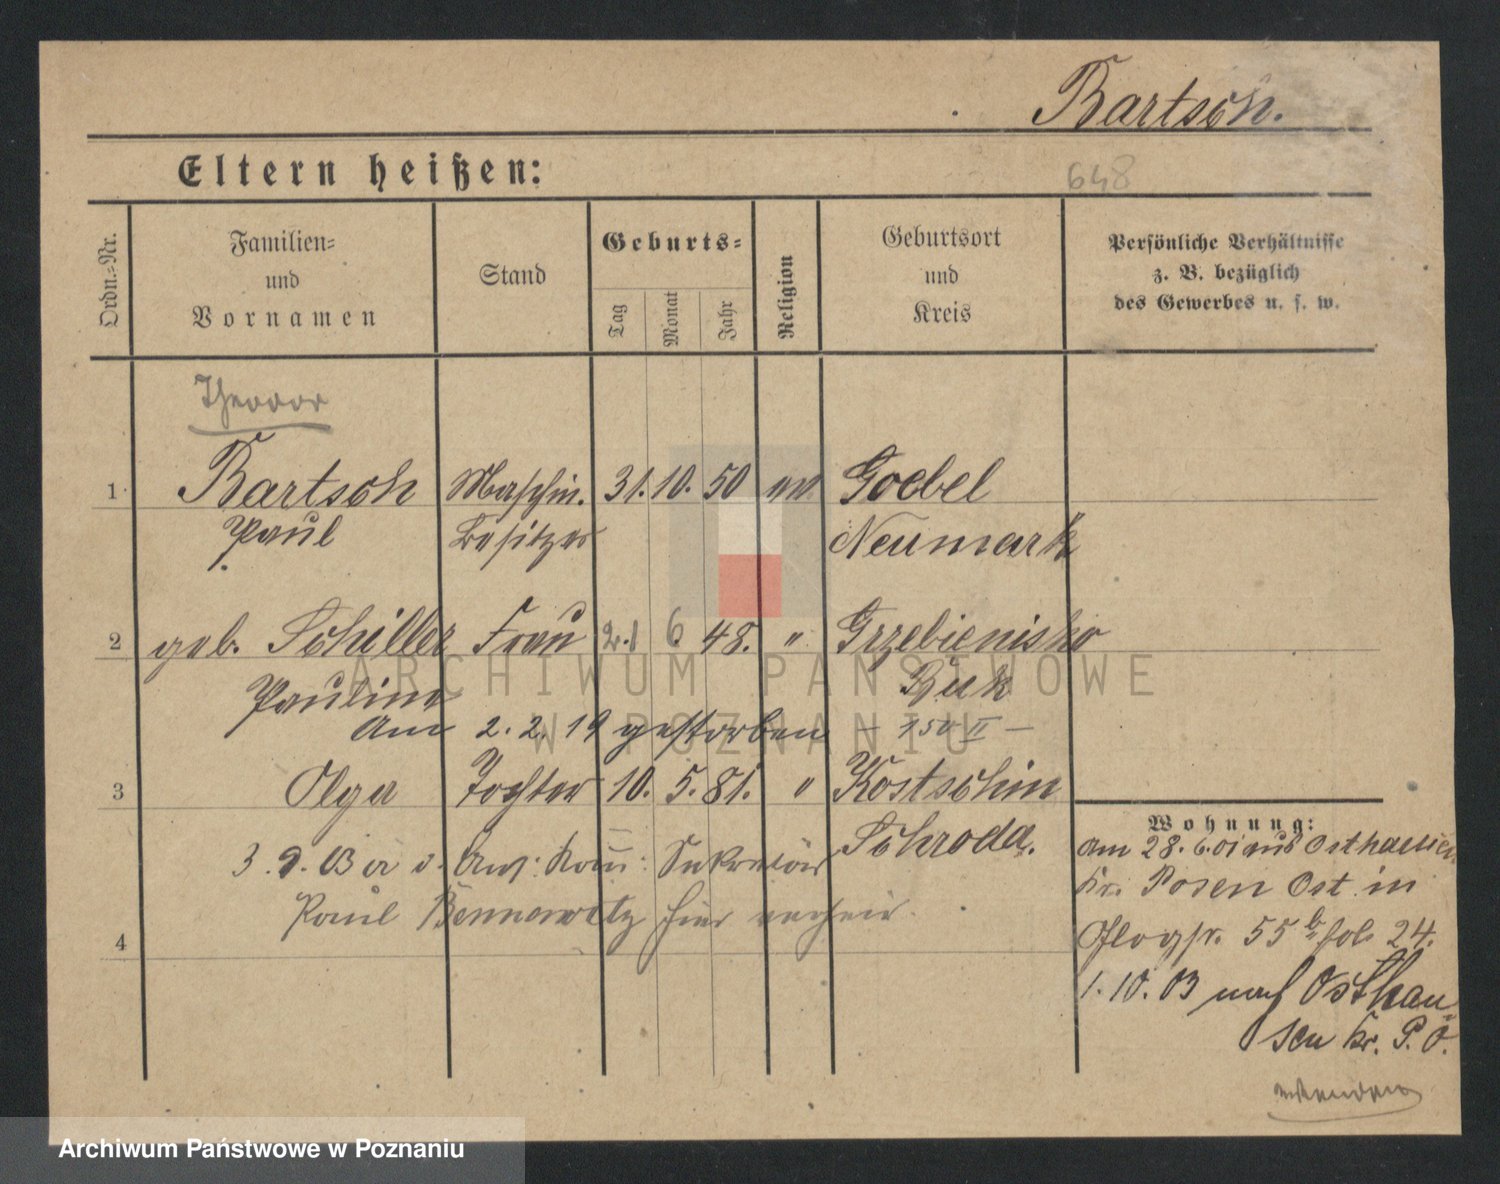 Bartsch.
Eltern heißen:
648
Ordn.=Nr.
Familien=
und
Vornamen
Stand
Geburts=
Tag
Monat
Jahr
Religion
Geburtsort
und
Kreis
Persönliche Verhältnisse
z. B. bezüglich
des Gewerbes u. s. w.
1 Bartsch Maschin. 31. 10. 50 ev. Goebel
Paul Besitzer Neumark
2 geb. Schiller Frau 2.1 6. 48. " Grzebienisko
Pauline Buk
Am 2. 2. 19 gestorben – 150 II –
3 Olga Tochter 10. 5. 81. " Kostschin
Schroda.
3. 9. 03 Sekretär
Paul Bennewitz hier verheir.
4
Wohnung:
am 28. 6. 01 aus Osthausen
Kr. Posen Ost in
55 b fol. 24.
1. 10. 03 nach Osthau=
sen Kr. P. O.
wenden
ARCHIWUM PAŃSTWOWE
W POZNANIU
Archiwum Państwowe w Poznaniu